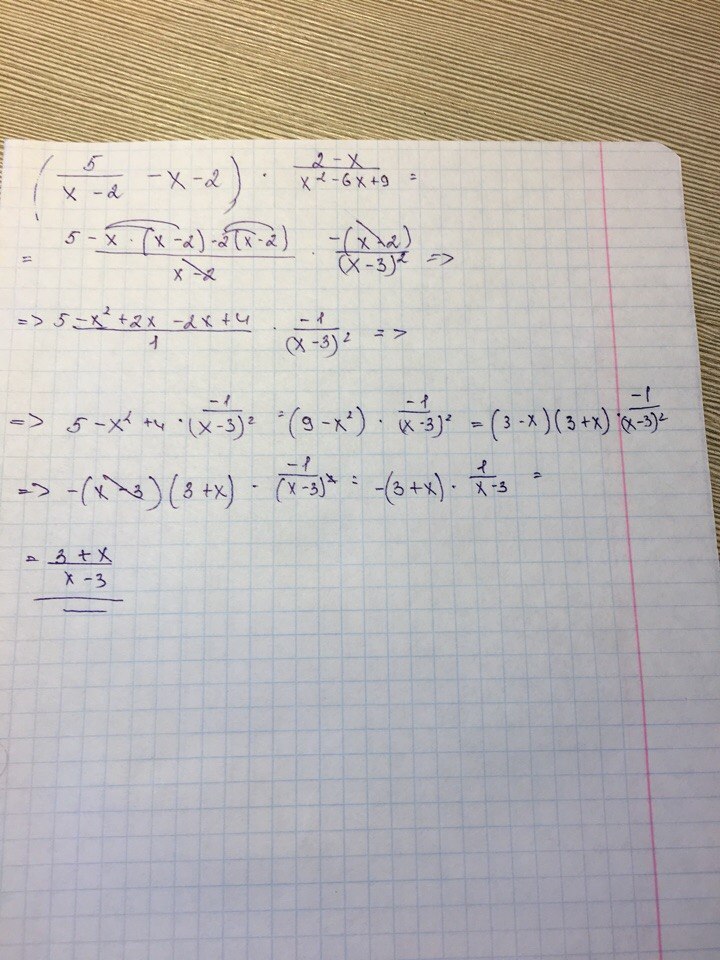 ( 5/(x - 2) - x - 2 ) · (2 - x)/(x² - 6x + 9) =
= (5 - x · (x - 2) - 2(x - 2))/(x - 2) · (-(x - 2))/(x - 3)² =>
=> (5 - x² + 2x - 2x + 4)/1 · (-1)/(x - 3)² =>
=> 5 - x² + 4 · (-1)/(x - 3)² = (9 - x²) · (-1)/(x - 3)² = (3 - x)(3 + x) · (-1)/(x - 3)²
=> -(x - 3)(3 + x) · (-1)/(x - 3)² = -(3 + x) · 1/(x - 3) =
= (3 + x)/(x - 3)